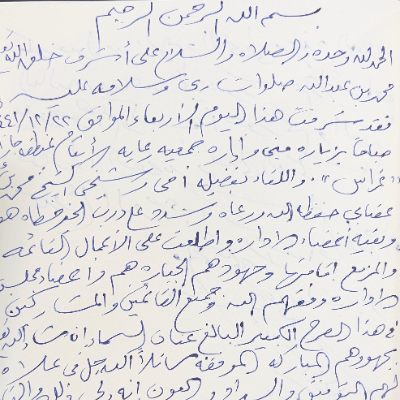 بسم الله الرحمن الرحيم
الحمد لله وحده والصلاة والسلام على أشرف خلق الله
محمد بن عبدالله صلوات ربي وسلامه عليه
فقد سرفت هذا اليوم الاربعاء الموافق ٢٢/١٢/
صباحاً بزيارة مبنى وإدارة جمعيه رعايه الأيتام بمنطقه
واللقاء بفضيله أخي وشيخي الشيخ محمد
حفظه الله ورعاه وسدد على درب الخير خطاه
وبقية أعضاء الاداره واطلعت على الأعمال القائمه
والمزمع اقامتها وجهودهم الجباره هم واعضاء مجلس
الاداره وفقهم الله وجميع القائمين والمشاركين
في هذا الصرح الكبير البالغ عنان السماء ان شاء الله
بجهودهم المباركه الموفقه سائلاً الله جل في علاه
لهم التوفيق والسداد والعون انه ولي ذلك